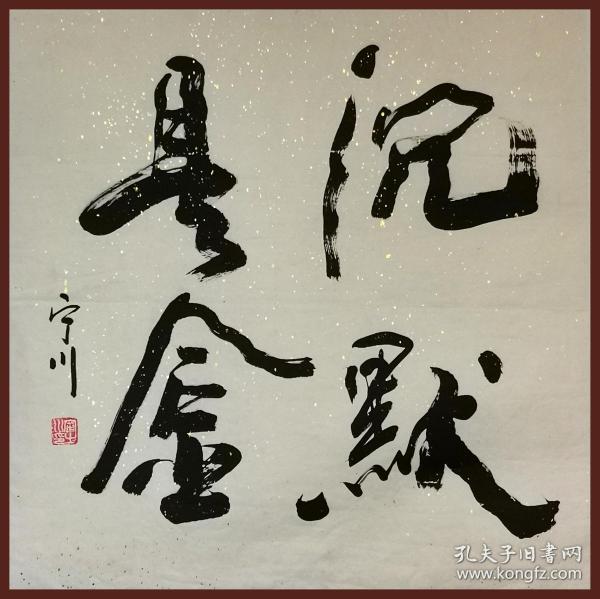 沉默
是金
宁川
孔夫子旧書网
www.kongfz.com